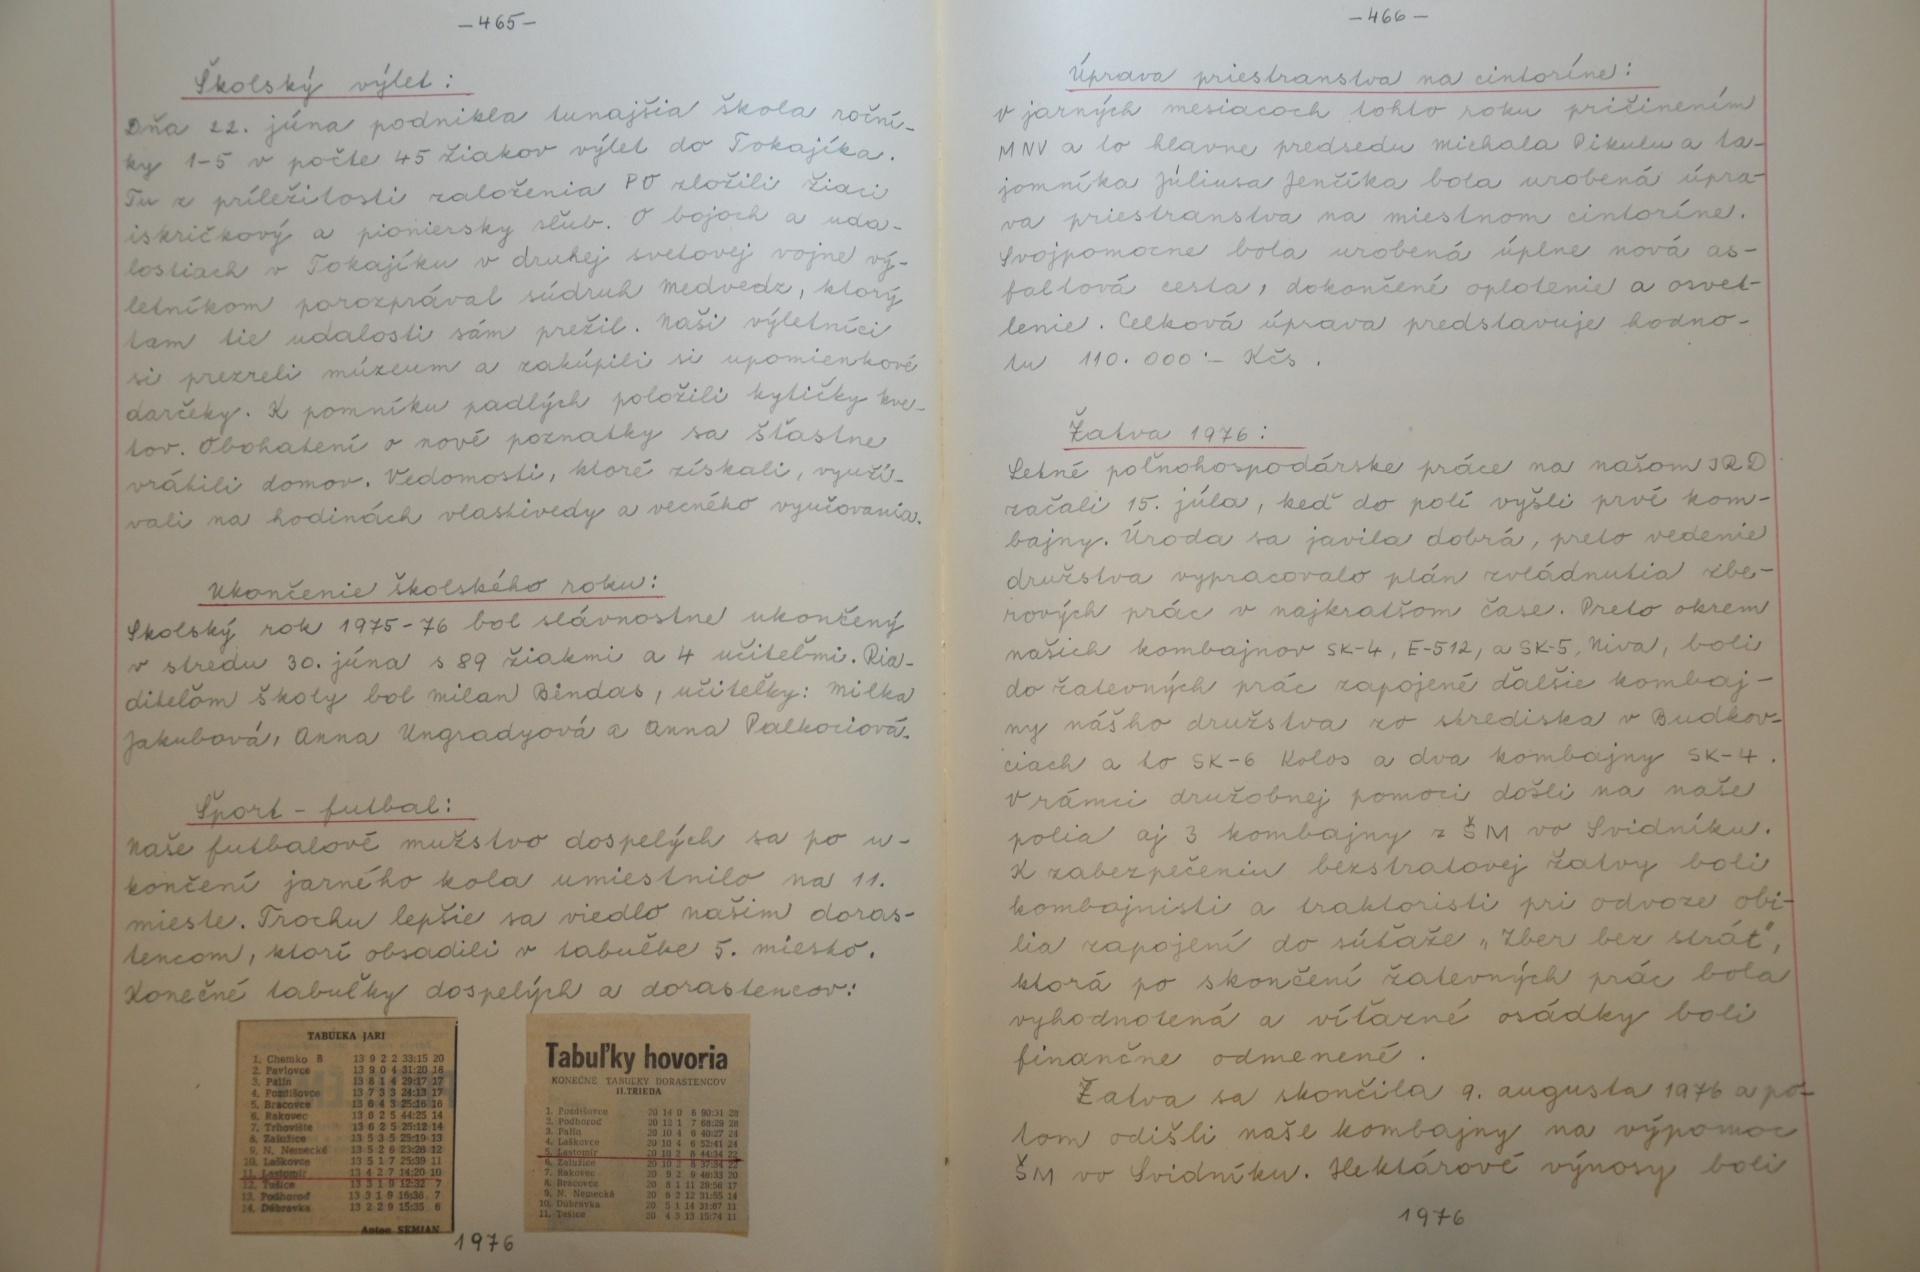 -465-
Školský výlet:
Dňa 22. júna podnikla tunajšia škola roční-
ky 1-5 v počte 45 žiakov výlet do Tokajíka.
Tu z príležitosti založenia PO zložili žiaci
iskričkový a pioniersky sľub. O bojoch a uda-
lostiach v Tokajíku v druhej svetovej vojne vý-
letníkom porozprával súdruh Medvedz, ktorý
tam tie udalosti sám prežil. Naši výletníci
si prezreli múzeum a zakúpili si upomienkové
darčeky. K pomníku padlých položili kytičky kve-
tov. Obohatení o nové poznatky sa šťastne
vrátili domov. Vedomosti, ktoré získali, využí-
vali na hodinách vlastivedy a vecného vyučovania.
Ukončenie školského roku:
Školský rok 1975-76 bol slávnostne ukončený
v stredu 30. júna s 89 žiakmi a 4 učiteľmi. Ria-
diteľom školy bol Milan Bindas, učiteľky: Milka
Jakubová, Anna Ungradyová a Anna Palkociová.
Šport - futbal:
Naše futbalové mužstvo dospelých sa po u-
končení jarného kola umiestnilo na 11.
mieste. Trochu lepšie sa viedlo našim doras-
tencom, ktorí obsadili v tabuľke 5. miesto.
Konečné tabuľky dospelých a dorastencov:
TABUĽKA JARI
1. Chemko B 13 9 2 2 33:15 20
2. Pavlovce 13 9 0 4 31:20 18
3. Palín 13 8 1 4 29:17 17
4. Pozdišovce 13 7 3 3 24:13 17
5. Bracovce 13 6 4 3 25:16 16
6. Rakovec 13 6 2 5 44:25 14
7. Trhovište 13 6 2 5 25:12 14
8. Zalužice 13 5 3 5 25:19 13
9. N. Nemecké 13 5 2 6 23:28 12
10. Laškovce 13 5 1 7 25:39 11
11. Lastomír 13 4 2 7 14:20 10
12. Tušice 13 3 1 9 12:32 7
13. Podhoroď 13 3 1 9 16:36 7
14. Dúbravka 13 2 2 9 15:35 6
Anton SEMJAN
Tabuľky hovoria
KONEČNÉ TABUĽKY DORASTENCOV
II. TRIEDA
1. Pozdišovce 20 14 0 6 90:31 28
2. Podhoroď 20 13 1 7 68:29 28
3. Palín 20 10 4 6 40:27 24
4. Laškovce 20 10 4 6 52:41 24
5. Lastomír 20 10 2 8 44:34 22
6. Zalužice 20 10 2 8 37:34 22
7. Rakovec 20 9 2 9 48:33 20
8. Bracovce 20 8 1 11 29:56 17
9. N. Nemecká 20 6 2 12 31:55 14
10. Dúbravka 20 5 1 14 31:67 11
11. Tušice 20 4 3 13 15:74 11
1976
-466-
Úprava priestranstva na cintoríne:
V jarných mesiacoch tohto roku pričinením
MNV a to hlavne predsedu Michala Pikulu a ta-
jomníka Júliusa Jenčíka bola urobená úpra-
va priestranstva na miestnom cintoríne.
Svojpomocne bola urobená úplne nová as-
faltová cesta, dokončené oplotenie a osvet-
lenie. Celková úprava predstavuje hodno-
tu 110.000'- Kčs.
Žatva 1976:
Letné poľnohospodárske práce na našom JRD
začali 15. júla, keď do polí vyšli prvé kom-
bajny. Úroda sa javila dobrá, preto vedenie
družstva vypracovalo plán zvládnutia zbe-
rových prác v najkratšom čase. Preto okrem
našich kombajnov SK-4, E-512, a SK-5, Niva, boli
do žatevných prác zapojené ďalšie kombaj-
ny nášho družstva zo strediska v Budkov-
ciach a to SK-6 Kolos a dva kombajny SK-4.
V rámci družobnej pomoci došli na naše
polia aj 3 kombajny z ŠM vo Svidníku.
K zabezpečeniu bezstratovej žatvy boli
kombajnisti a traktoristi pri odvoze obi-
lia zapojení do súťaže „Zber bez strát",
ktorá po skončení žatevných prác bola
vyhodnotená a víťazné osádky boli
finančne odmenené.
Žatva sa skončila 9. augusta 1976 a po-
tom odišli naše kombajny na výpomoc
ŠM vo Svidníku. Hektárové výnosy boli
1976